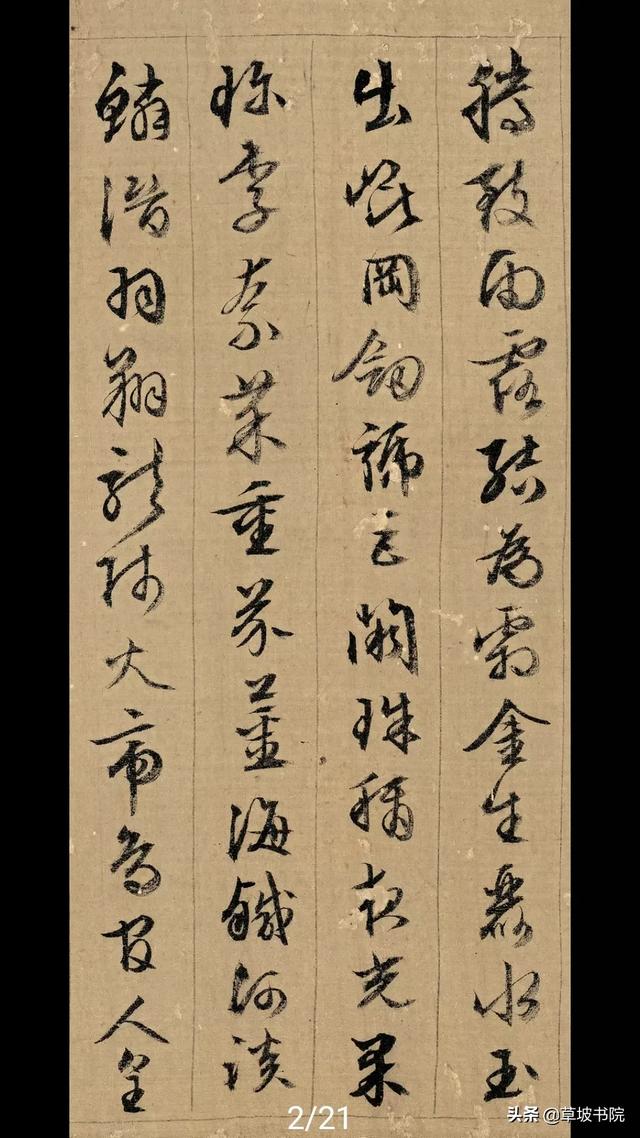 騰致雨露結為霜金生麗水玉
出崑岡劍號巨闕珠稱夜光果
珍李柰菜重芥薑海鹹河淡
鱗潛羽翔龍師火帝鳥官人皇
2/21
头条 @草坡书院